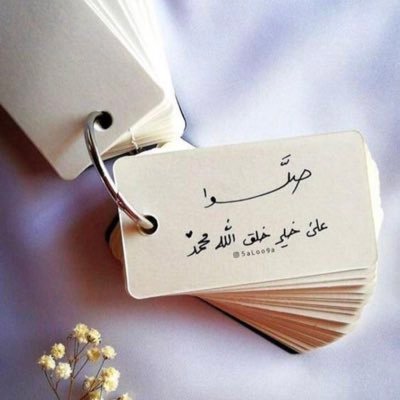 صلَّوا
على خير خلق الله محمد
5aLoo9a